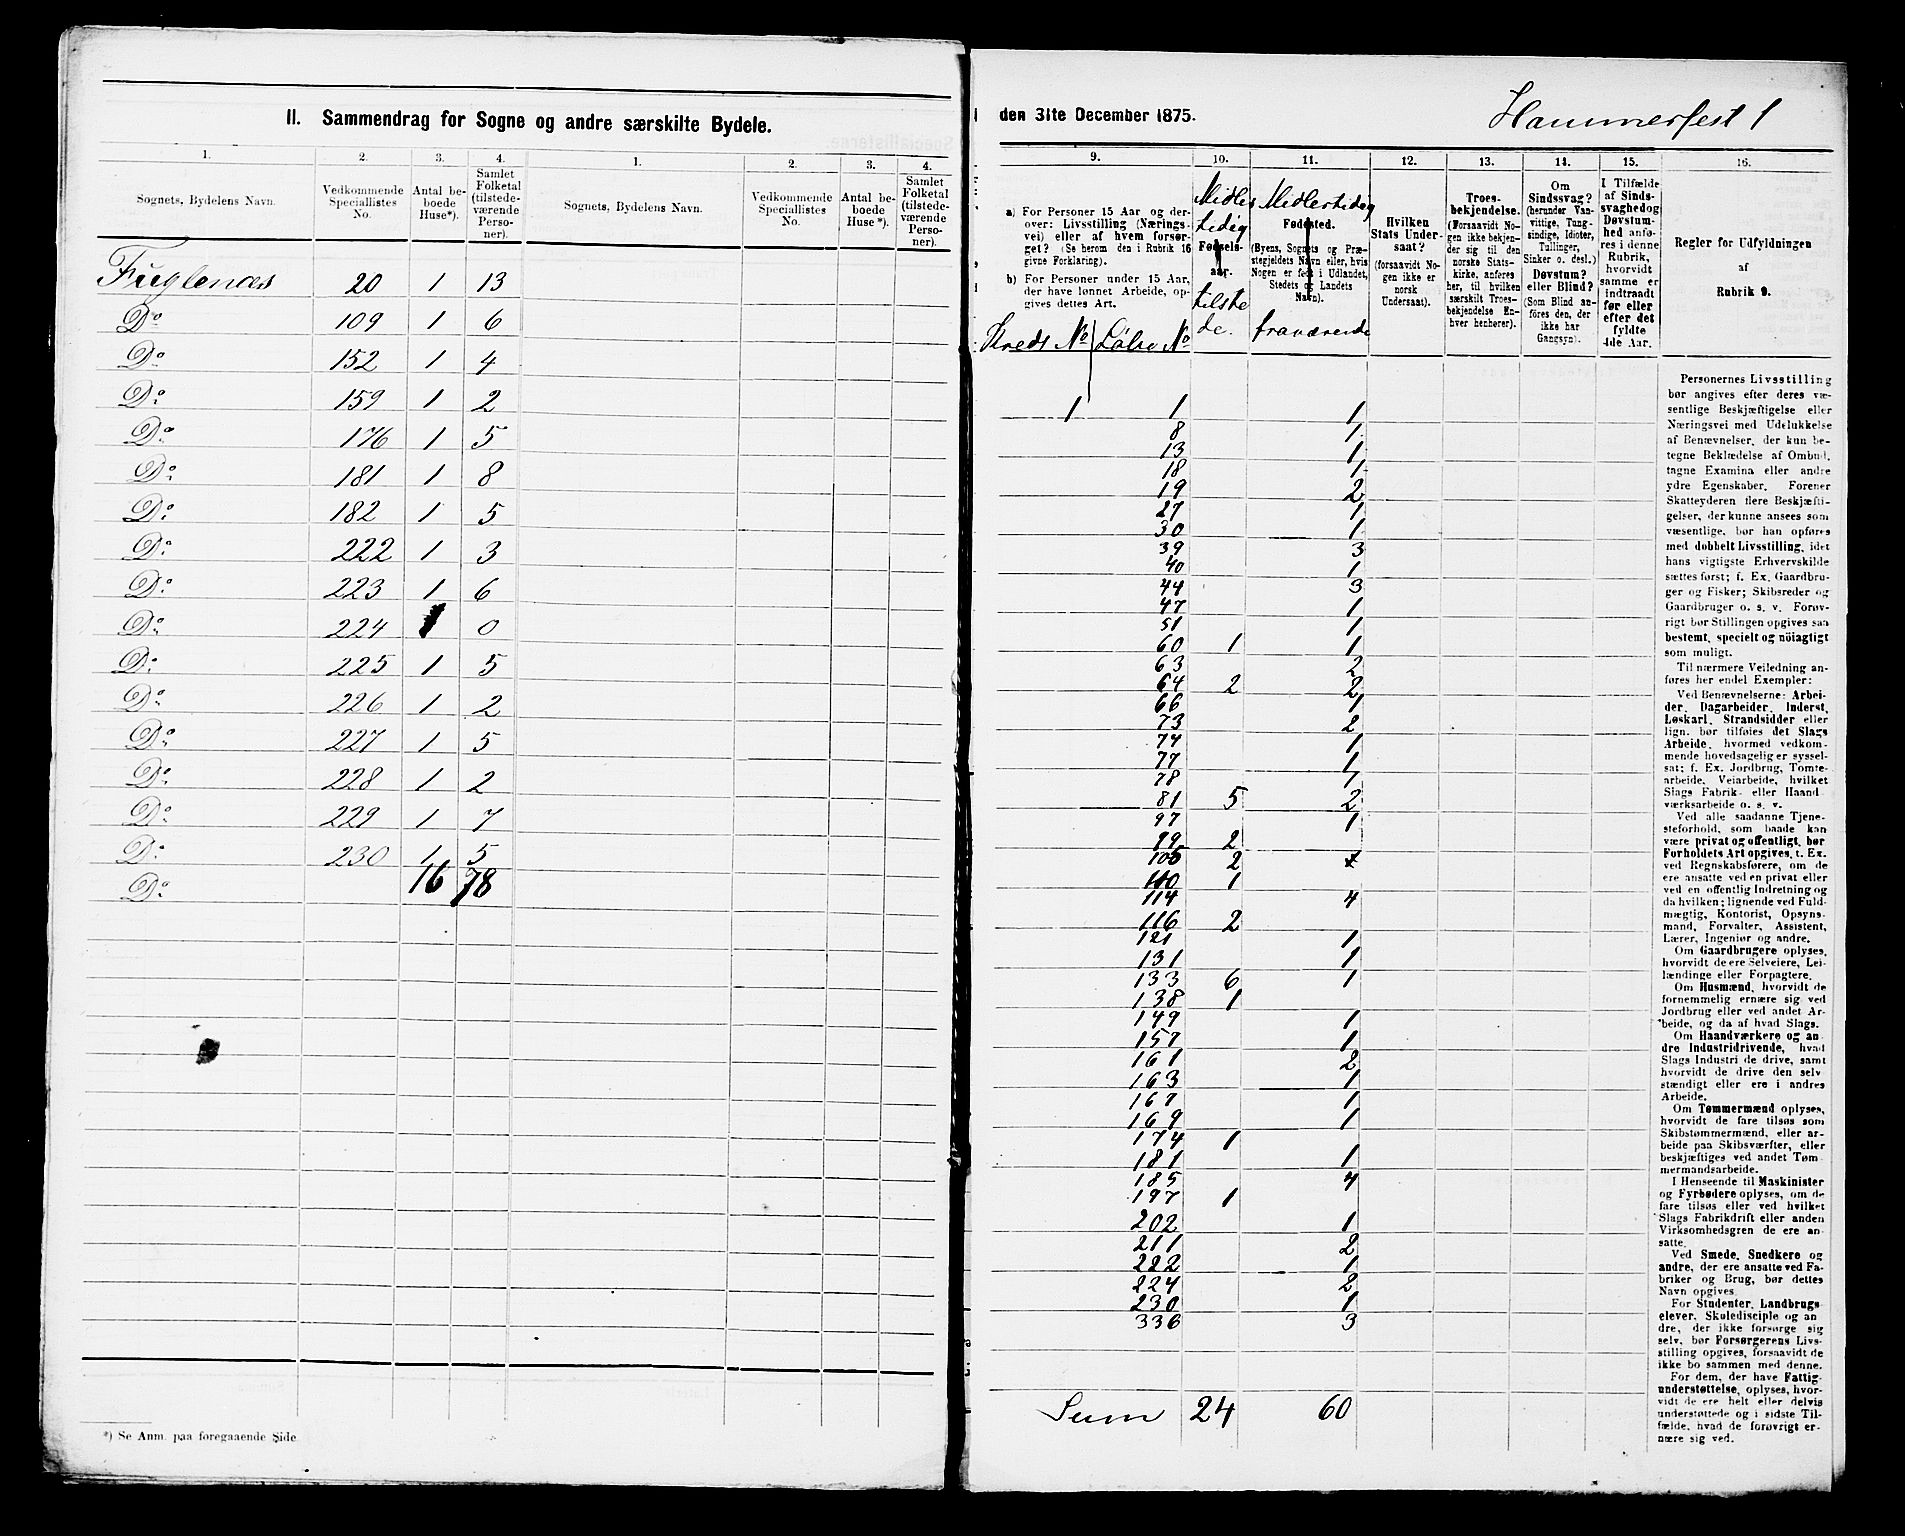 II. Sammendrag for Sogne og andre særskilte Bydele.
1. 2. 3. 4. 1. 2. 3. 4.
Sognets, Bydelens Navn. Vedkommende Speciallistes No. Antal beboede Huse*). Samlet Folketal (tilstedeværende Personer). Sognets, Bydelens Navn. Vedkommende Speciallistes No. Antal beboede Huse*). Samlet Folketal (tilstedeværende Personer).
Fuglenæs 20 1 13
Do 109 1 6
Do 152 1 4
Do 159 1 2
Do 176 1 5
Do 181 1 8
Do 182 1 5
Do 222 1 3
Do 223 1 6
Do 224 1 0
Do 225 1 5
Do 226 1 2
Do 227 1 5
Do 228 1 2
Do 229 1 7
Do 230 1 5
Do 16 78
*) Se Anm. paa foregaaende Side.
den 31te December 1875.
Hammerfest 1
9. 10. 11. 12. 13. 14. 15. 16.
a) For Personer 15 Aar og derover: Livsstilling (Næringsvei) eller af hvem forsørget? (Se herom den i Rubrik 16 givne Forklaring).
b) For Personer under 15 Aar, der have lønnet Arbeide, opgives dettes Art.
Kreds No Løbe No
Midlertidig
Fødselsaar.
tilstede.
Midlertidig
Fødested.
(Byens, Sognets og Præstegjeldets Navn eller, hvis Nogen er født i Udlandet, Stedets og Landets Navn).
fraværende
Hvilken Stats Undersaat?
(forsaavidt Nogen ikke er norsk Undersaat).
Troesbekjendelse.
(Forsaavidt Nogen ikke bekjender sig til den norske Statskirke, anføres her, til hvilken særskilt Troesbekjendelse Enhver henhører).
Om Sindssvag?
(herunder Vanvittige, Tungsindige, Idioter, Tullinger, Sinker o. desl.)
Døvstum? eller Blind?
(Som Blind anføres den, der ikke har Gangsyn).
I Tilfælde af Sindssvaghedog Døvstumhed anføres i denne Rubrik, hvorvidt samme er indtraadt før eller efter det fyldte 4de Aar.
Regler for Udfyldningen
af
Rubrik 9.
1 1 1
8 1
13 1
18 1
19 2
27 1
30 1
39 3
40 1
44 3
47 1
51 1
60 1 1
63 2
64 2 2
66 1
73 2
74 1
77 1
78 1
81 5 2
97 1
99 2
105 2
110 1
114 4
116 2
121 1
131 1
133 6 1
138 1
149 1
157 1
161 2
163 1
167 1
169 1
174 1
181 1
185 4
197 1
202 1
211 2
222 1
224 2
230 1
336 3
Sum 24 60
Personernes Livsstilling
bør angives efter deres væ-
sentlige Beskjæftigelse eller
Næringsvei med Udelukkelse
af Benævnelser, der kun be-
tegne Beklædelse af Ombud,
tagne Examina eller andre
ydre Egenskaber. Forener
Skatteyderen flere Beskjæfti-
gelser, der kunne ansees som
væsentlige, bør han opføres
med dobbelt Livsstilling, idet
hans vigtigste Erhvervskilde
sættes først; f. Ex. Gaardbru-
ger og Fisker; Skibsreder og
Gaardbruger o. s. v. Forøv-
rigt bør Stillingen opgives saa
bestemt, specielt og nöiagtigt
som muligt.
Til nærmere Veiledning an-
føres her endel Exempler:
Ved Benævnelserne: Arbei-
der, Dagarbeider, Inderst,
Løskarl, Strandsidder eller
lign. bør tilføies det Slags
Arbeide, hvormed vedkom-
mende hovedsagelig er syssel-
sat; f. Ex. Jordbrug, Tomte-
arbeide, Veiarbeide, hvilket
Slags Fabrik- eller Haand-
værksarbeide o. s. v.
Ved alle saadanne Tjene-
steforhold, som baade kan
være privat og offentligt, bør
Forholdets Art opgives, t. Ex.
ved Regnskabsførere, om de
ere ansatte ved en privat eller
ved en offentlig Indretning og
da hvilken; lignende ved Fuld-
mægtig, Kontorist, Opsyns-
mand, Forvalter, Assistent,
Lærer, Ingeniør og andre.
Om Gaardbrugere oplyses,
hvorvidt de ere Selveiere, Lei-
lændinge eller Forpagtere.
Om Husmænd, hvorvidt de
fornemmelig ernære sig ved
Jordbrug eller ved andet Ar-
beide, og da af hvad Slags.
Om Haandværkere og an-
dre Industridrivende, hvad
Slags Industri de drive, samt
hvorvidt de drive den selv-
stændigt eller ere i andres
Arbeide.
Om Tømmermænd oplyses,
hvorvidt de fare tilsøs som
Skibstømmermænd, eller ar-
beide paa Skibsværfter, eller
beskjæftiges ved andet Tøm-
mermandsarbeide.
I Henseende til Maskinister
og Fyrbødere oplyses, om de
fare tilsøs eller ved hvilket
Slags Fabrikdrift eller anden
Virksomhedsgren de ere an-
satte.
Ved Smede, Snedkere og
andre, der ere ansatte ved Fa-
briker og Brug, bør dettes
Navn opgives.
For Studenter, Landbrugs-
elever, Skoledisciple og an-
dre, der ikke forsørge sig
selv, bør Forsørgerens Livs-
stilling opgives, forsaavidt de
ikke bo sammen med denne.
For dem, der have Fattig-
understøttelse, oplyses, hvor-
vidt de ere helt eller delvis
understøttede og i sidste Til-
fælde, hvad de forøvrigt er-
nære sig ved.